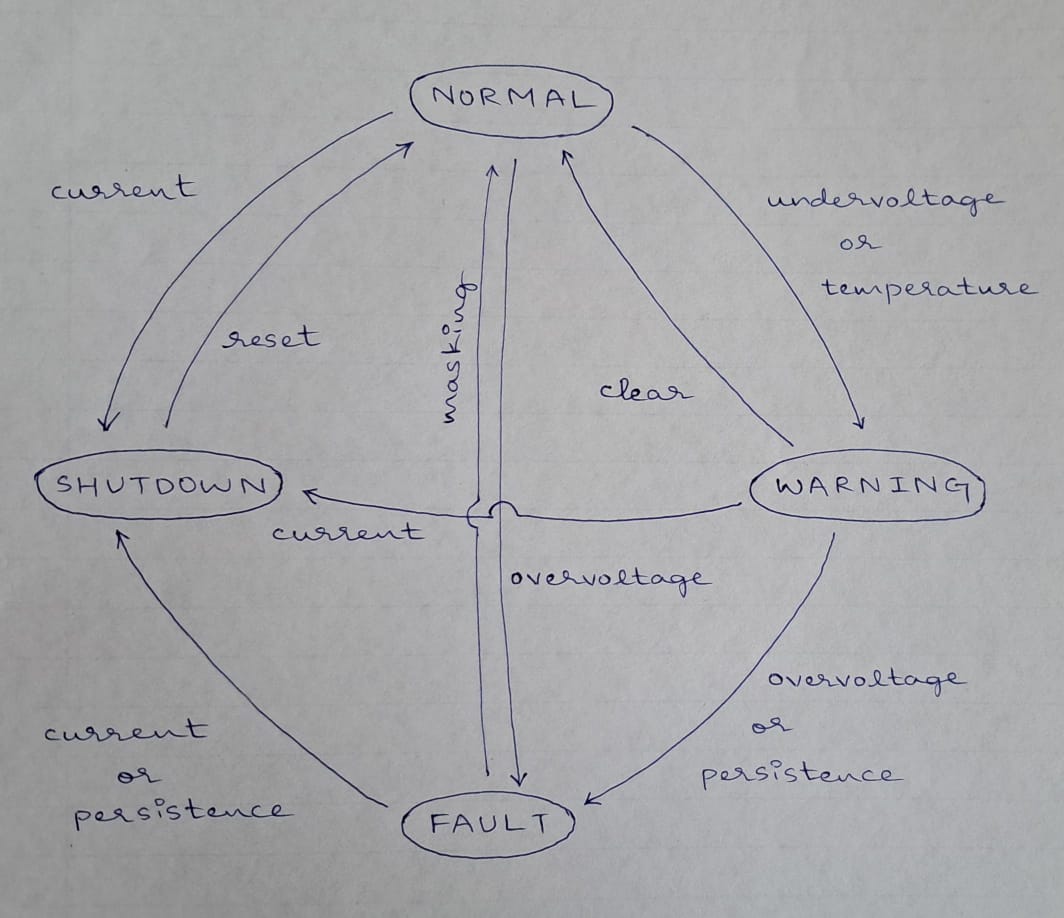 NORMAL
current
undervoltage
or
temperature
masking
reset
clear
SHUTDOWN
WARNING
current
overvoltage
overvoltage
or
persistence
current
or
persistence
FAULT